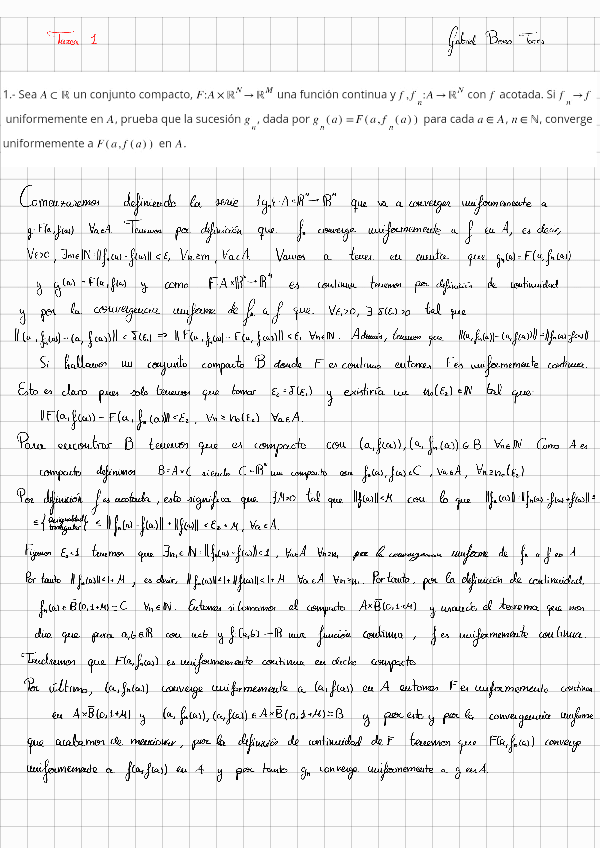 Tarea 1
Gabriel Bravo Torres
1.- Sea A ⊂ ℝ un conjunto compacto, F: A × ℝ^N → ℝ^M una función continua y f, f_n : A → ℝ^N con f acotada. Si f_n → f
uniformemente en A, prueba que la sucesión g_n, dada por g_n(a) = F(a, f_n(a)) para cada a ∈ A, n ∈ ℕ, converge
uniformemente a F(a, f(a)) en A.
Comenzaremos definiendo la serie {g_n}: A → ℝ^M que va a converger uniformemente a
g = F(a, f(a)) ∀a∈A. Tenemos por definición que f_n converge uniformemente a f en A, es decir,
∀ε>0, ∃m∈ℕ : ||f_n(a) - f(a)|| < ε, ∀n≥m, ∀a∈A. Vamos a tener en cuenta que g_n(a) = F(a, f_n(a))
y g(a) = F(a, f(a)) y como F: A×ℝ^N → ℝ^M es continua tenemos por definición de continuidad
y por la convergencia uniforme de f_n a f que. ∀ε₁>0, ∃ δ(ε₁)>0 tal que
||(a, f_n(a)) - (a, f(a))|| < δ(ε₁) ⇒ ||F(a, f_n(a)) - F(a, f(a))|| < ε₁ ∀n∈ℕ. Además, tenemos que ||(a, f_n(a)) - (a, f(a))|| = ||f_n(a) - f(a)||
Si hallamos un conjunto compacto B donde F es continua entonces F es uniformemente continua.
Esto es claro pues solo tenemos que tomar ε₂ = δ(ε₁) y existiría un n₀(ε₂) ∈ ℕ tal que
||F(a, f(a)) - F(a, f_n(a))|| < ε₂, ∀n ≥ n₀(ε₂) ∀a∈A.
Para encontrar B tenemos que es compacto con (a, f(a)), (a, f_n(a)) ∈ B ∀n∈ℕ Como A es
compacto definimos B = A×C siendo C ⊂ ℝ^N un compacto con f_n(a), f(a) ∈ C, ∀a∈A, ∀n ≥ n₀(ε₂)
Por definición f es acotada, esto significa que ∃M>0 tal que ||f(a)|| < M con lo que ||f_n(a)|| = ||f_n(a) - f(a) + f(a)|| ≤
≤ {desigualdad triangular} ≤ ||f_n(a) - f(a)|| + ||f(a)|| < ε₂ + M, ∀a∈A.
Fijamos ε₂=1 tenemos que ∃n₁∈ℕ : ||f_n(a) - f(a)|| < 1, ∀a∈A ∀n≥n₁, por la convergencia uniforme de f_n a f en A
Por tanto ||f_n(a)|| < 1+M, es decir, ||f_n(a)|| < 1 + ||f(a)|| < 1+M ∀a∈A ∀n≥n₁. Por tanto, por la definición de continuidad,
f_n(a) ∈ B̄(0, 1+M) = C ∀n∈ℕ. Entonces si tomamos el compacto A×B̄(0, 1+M) y usando el teorema que nos
dice que para a,b∈ℝ con a<b y f: [a,b] → ℝ una función continua, f es uniformemente continua.
Tendremos que F(a, f_n(a)) es uniformemente continua en dicho compacto
Por último, (a, f_n(a)) converge uniformemente a (a, f(a)) en A entonces F es uniformemente continua
en A×B̄(0, 1+M) y (a, f_n(a)), (a, f(a)) ∈ A×B̄(0, 1+M) = B y por esto y por la convergencia uniforme
que acabamos de mencionar, por la definición de continuidad de F tenemos que F(a, f_n(a)) converge
uniformemente a f(a, f(a)) en A y por tanto g_n converge uniformemente a g en A.